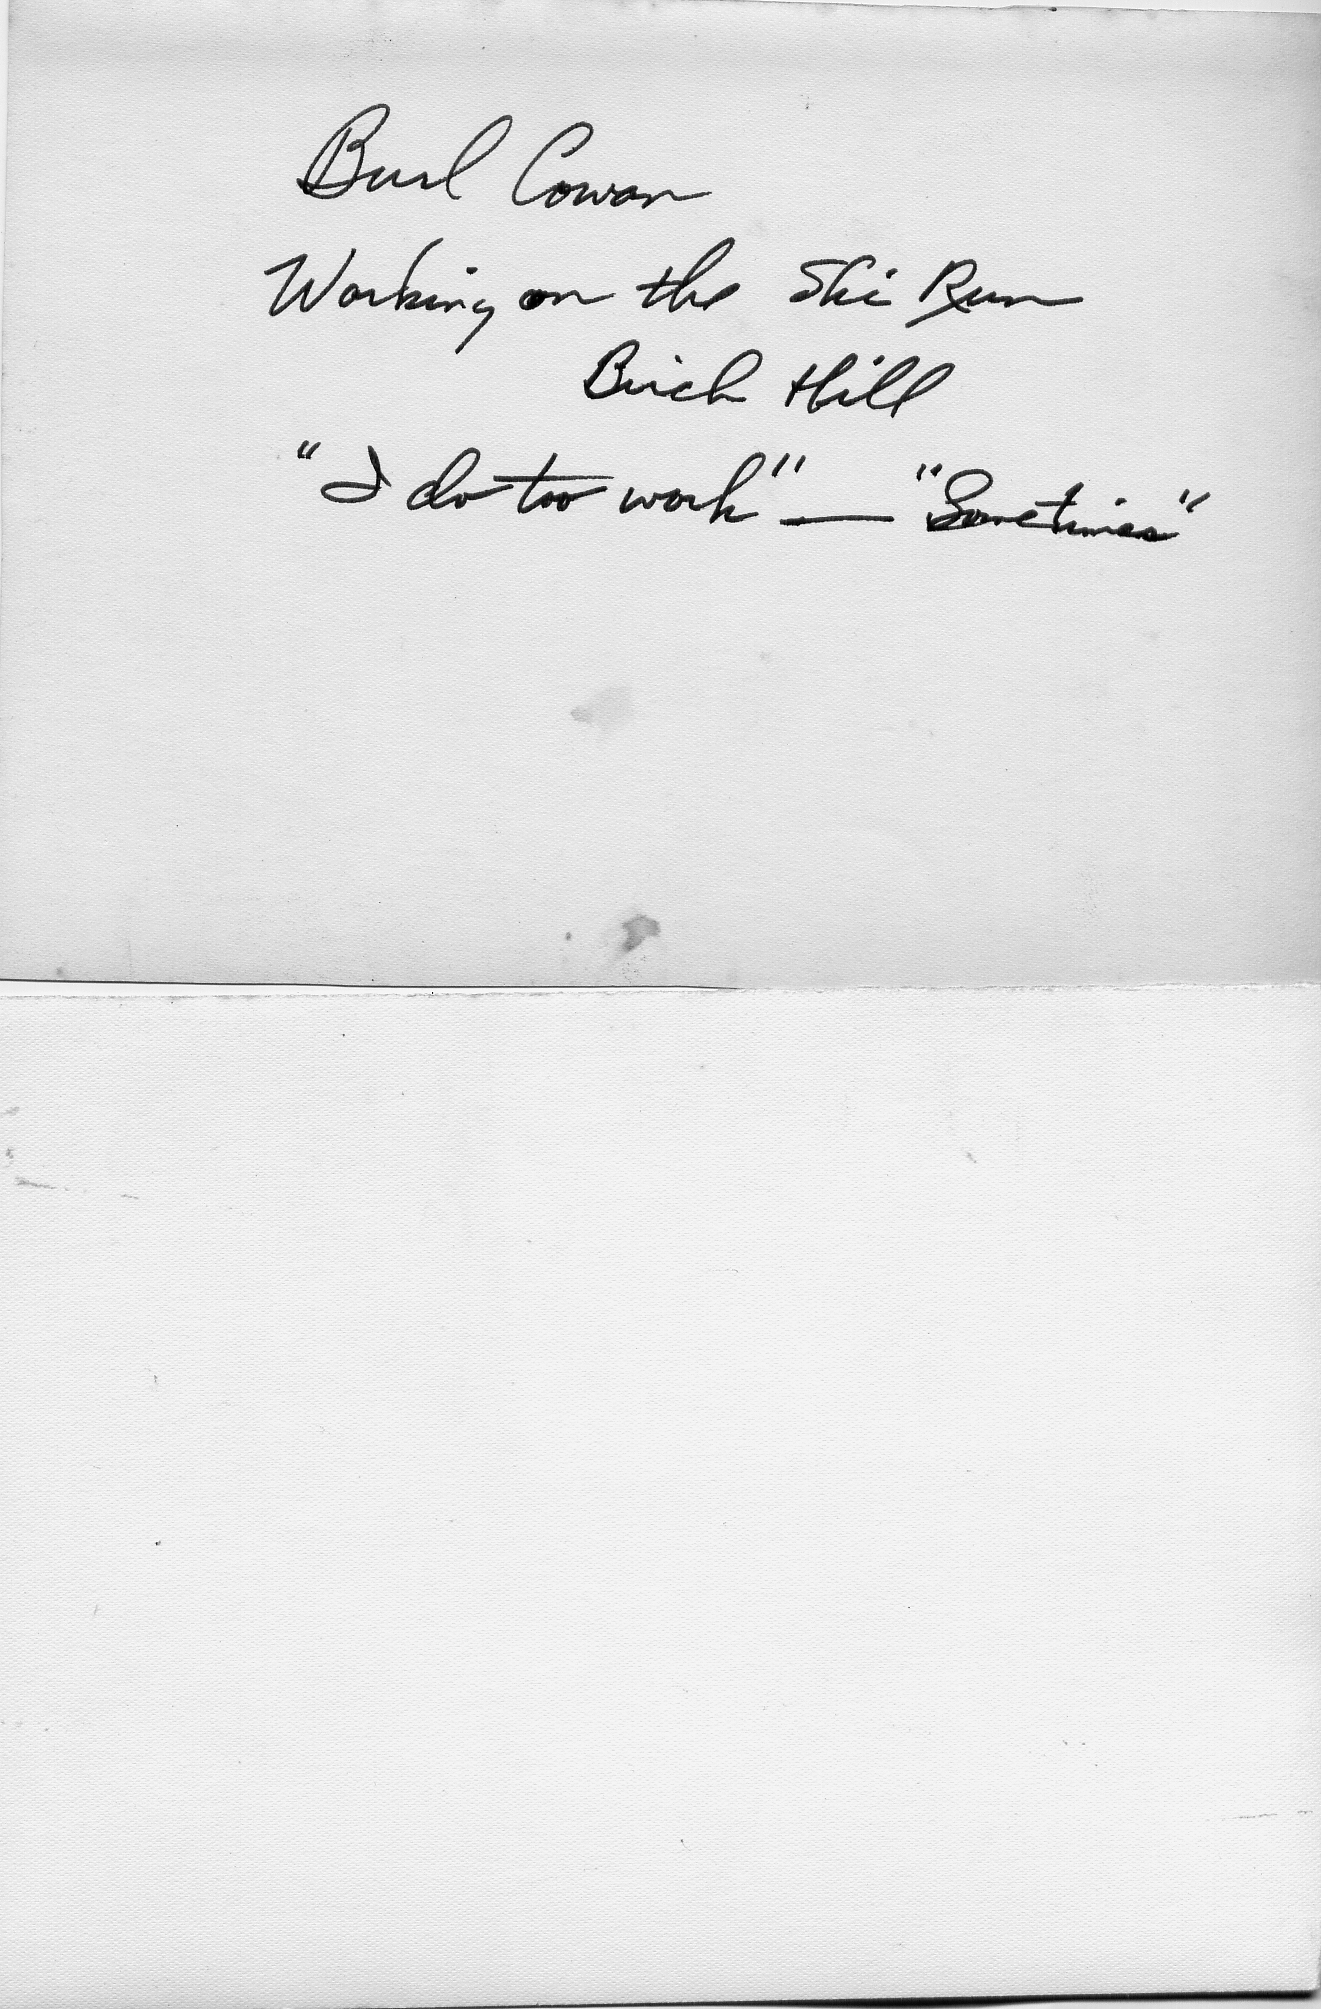 Burl Cowan
Working on the Ski Run
Birch Hill
"I do too work" — "Sometimes"